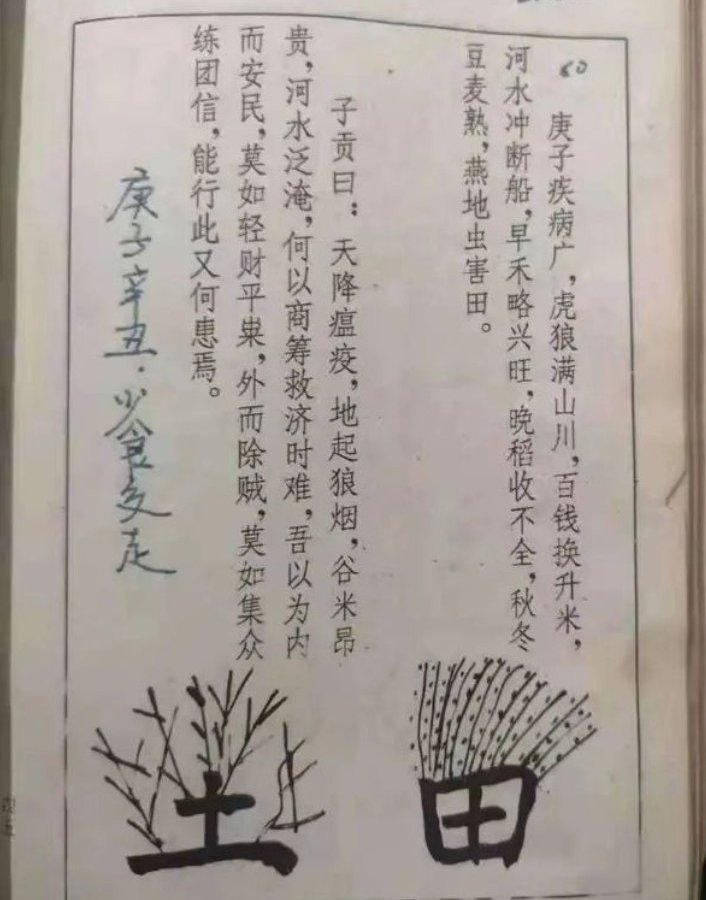 60
庚子疾病广，虎狼满山川，百钱换升米，
河水冲断船，早禾略兴旺，晚稻收不全，秋冬
豆麦熟，燕地虫害田。
子贡曰：天降瘟疫，地起狼烟，谷米昂
贵，河水泛淹，何以商筹救济时难，吾以为内
而安民，莫如轻财平粜，外而除贼，莫如集众
练团信，能行此又何患焉。
庚子辛丑．少食多走
田
土